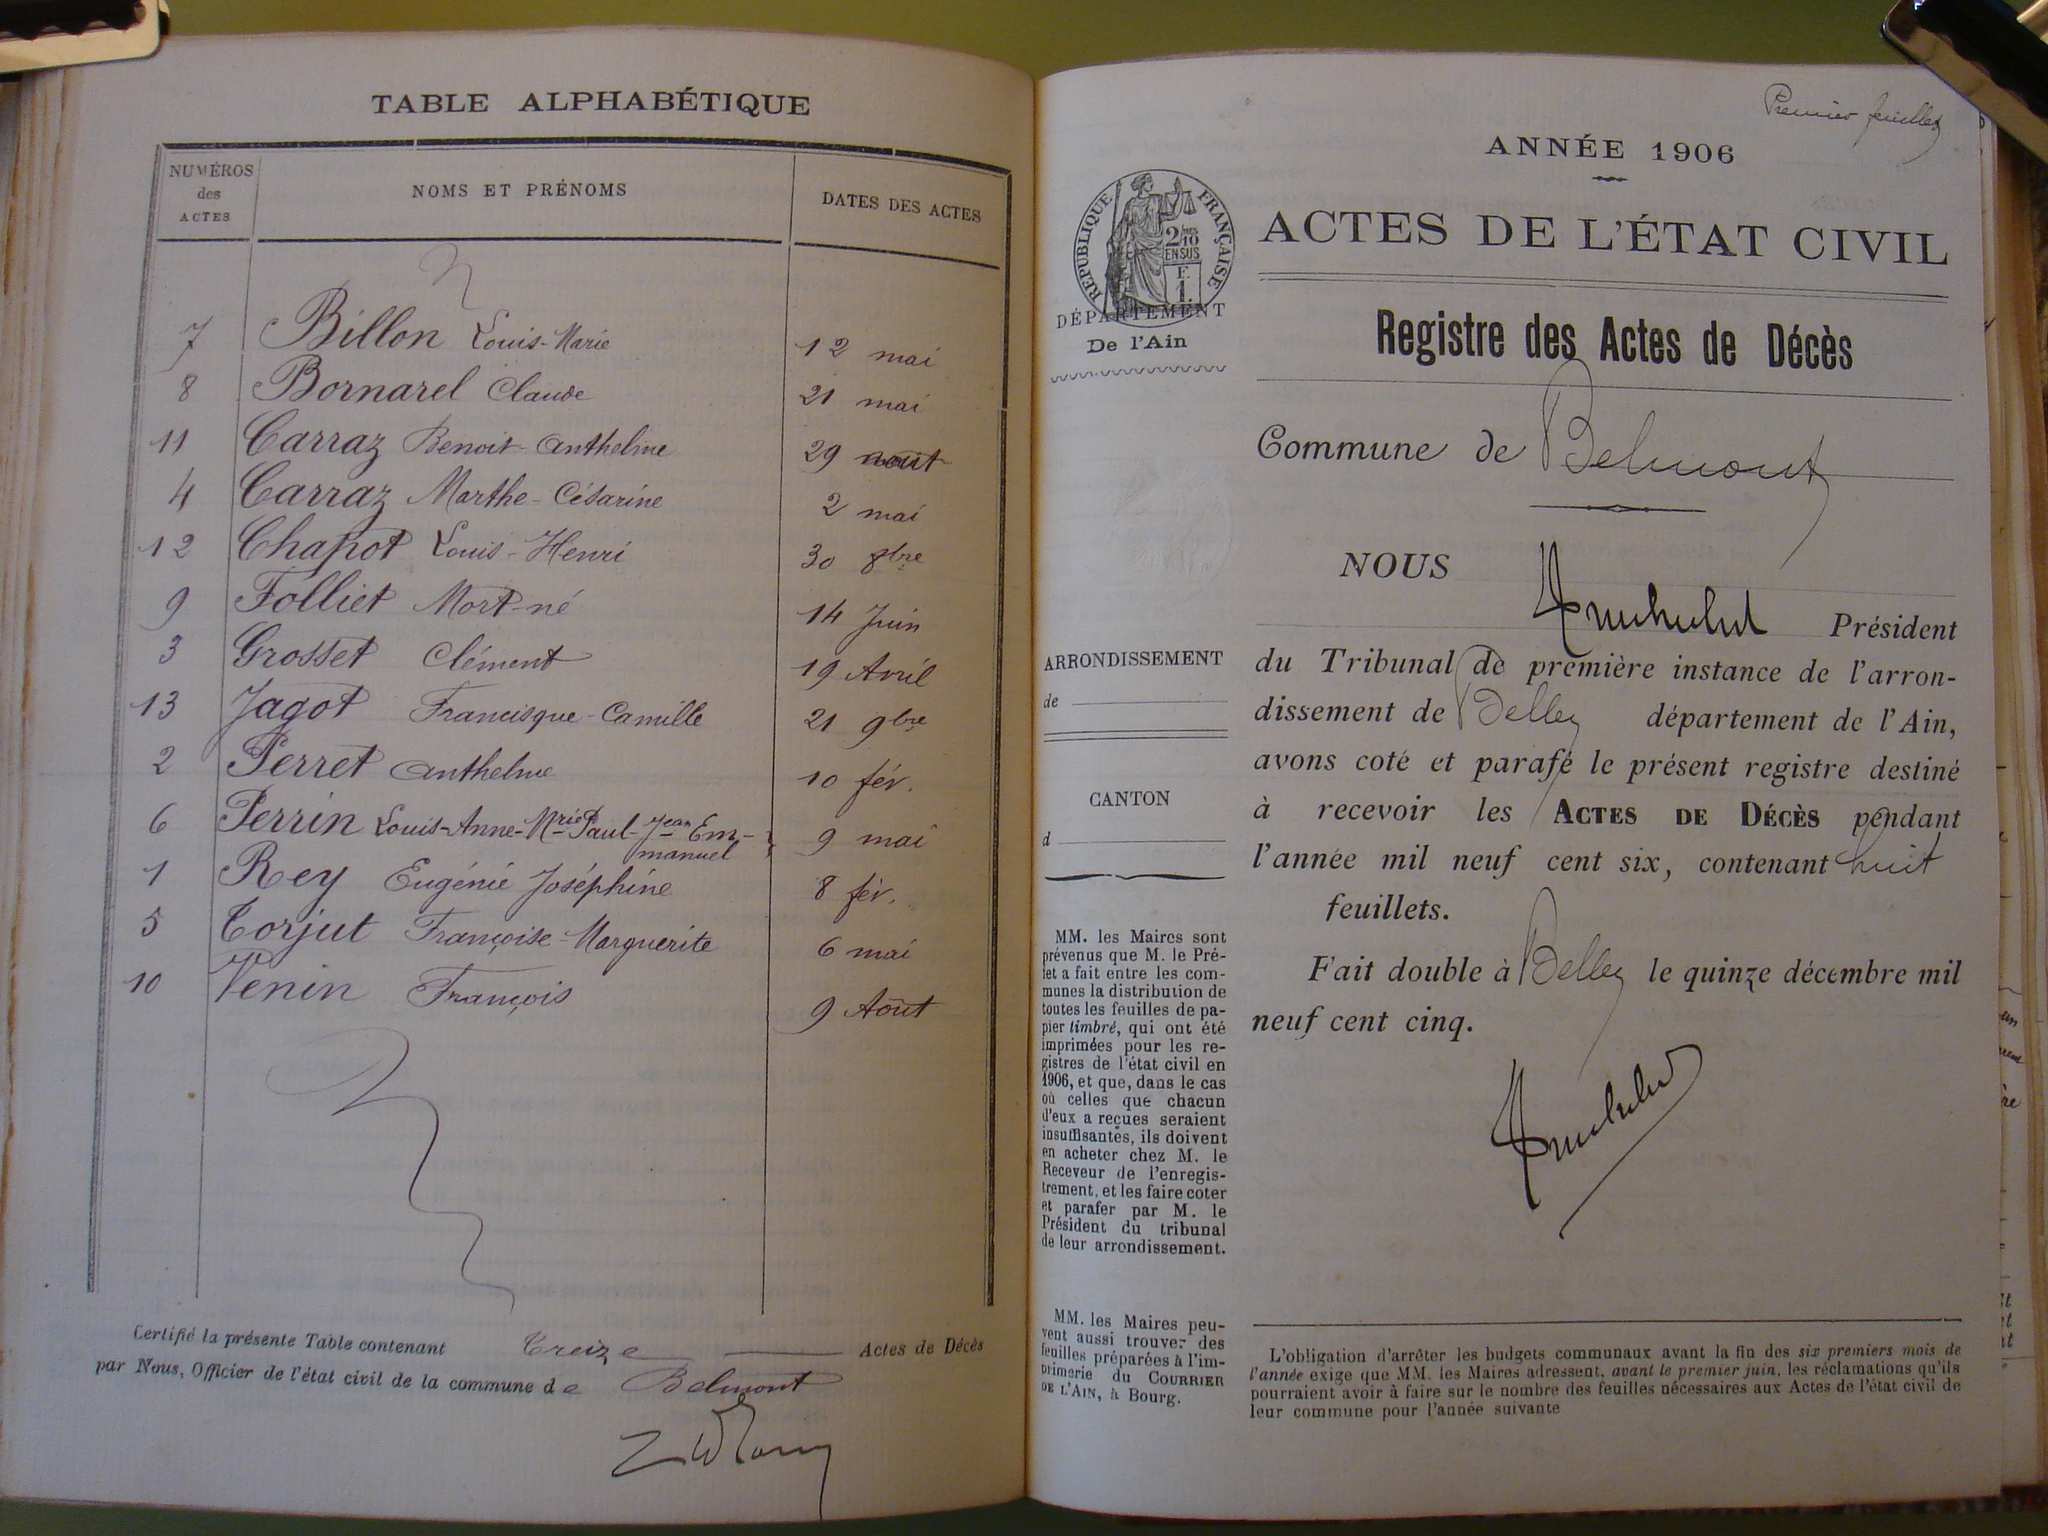 TABLE ALPHABÉTIQUE
NUMÉROS des ACTES NOMS ET PRÉNOMS DATES DES ACTES
7 Billon Louis-Marie 12 mai
8 Bornarel Claude 21 mai
11 Carraz Benoit-Anthelme 29 août
4 Carraz Marthe-Césarine 2 mai
12 Chapot Louis-Henri 30 8bre
9 Folliet Mort-né 14 Juin
3 Grosset Clément 19 Avril
13 Jagot Francisque-Camille 21 9bre
2 Perret Anthelme 10 fév.
6 Perrin Louis-Anne-Mrie Paul-Jean Em-
manuel 9 mai
1 Rey Eugénie Joséphine 8 fév.
5 Torjut Françoise-Marguerite 6 mai
10 Venin François 9 Août
Certifié la présente Table contenant Treize Actes de Décès
par Nous, Officier de l'état civil de la commune de Belmont
Premier feuillet
ANNÉE 1906
RÉPUBLIQUE FRANÇAISE
2/10 EN SUS
F. 1.
DÉPARTEMENT
De l'Ain
ACTES DE L'ÉTAT CIVIL
Registre des Actes de Décès
Commune de Belmont
NOUS
Président
du Tribunal de première instance de l'arron-
dissement de Belley département de l'Ain,
avons coté et parafé le présent registre destiné
à recevoir les ACTES DE DÉCÈS pendant
l'année mil neuf cent six, contenant huit
feuillets.
Fait double à Belley le quinze décembre mil
neuf cent cinq.
ARRONDISSEMENT
de
CANTON
d
MM. les Maires sont
prévenus que M. le Pré-
fet a fait entre les com-
munes la distribution de
toutes les feuilles de pa-
pier timbré, qui ont été
imprimées pour les re-
gistres de l'état civil en
1906, et que, dans le cas
où celles que chacun
d'eux a reçues seraient
insuffisantes, ils doivent
en acheter chez M. le
Receveur de l'enregis-
trement, et les faire coter
et parafer par M. le
Président du tribunal
de leur arrondissement.
MM. les Maires peu-
vent aussi trouver des
feuilles préparées à l'im-
primerie du COURRIER
DE L'AIN, à Bourg.
L'obligation d'arrêter les budgets communaux avant la fin des six premiers mois de
l'année exige que MM. les Maires adressent, avant le premier juin, les réclamations qu'ils
pourraient avoir à faire sur le nombre des feuilles nécessaires aux Actes de l'état civil de
leur commune pour l'année suivante